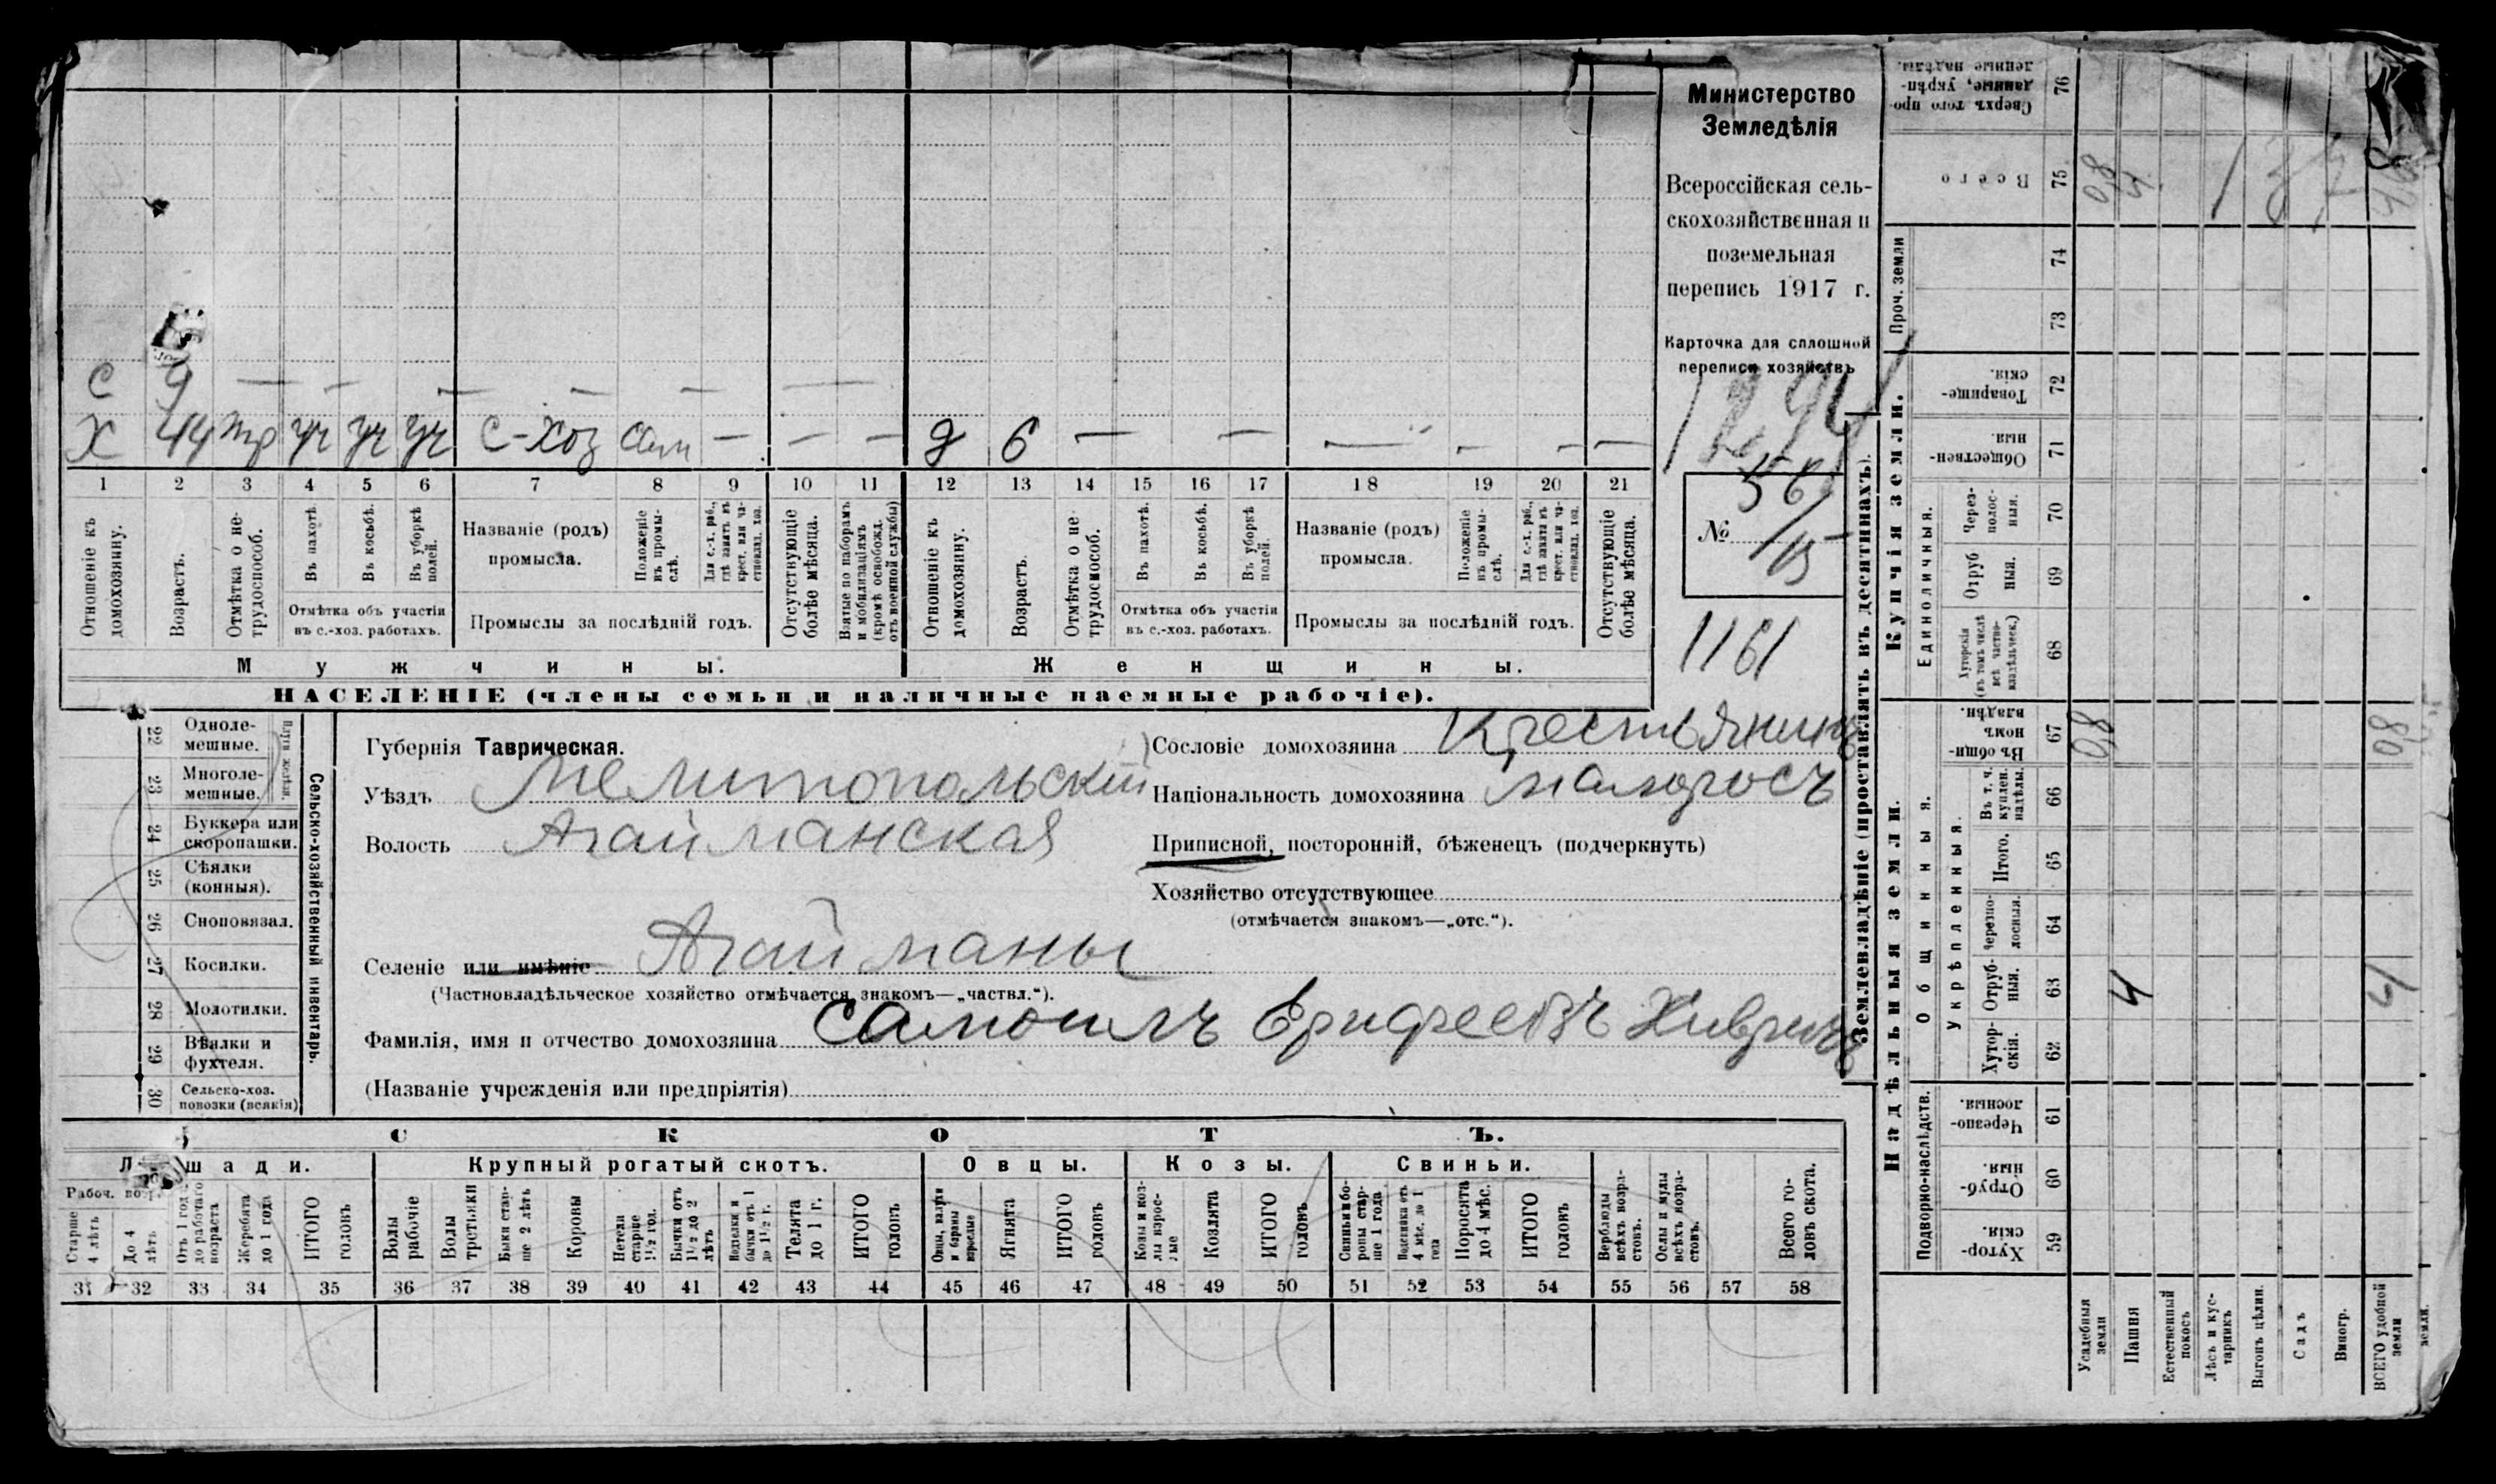 Министерство
Земледѣлія
Всероссійская сель-
скохозяйственная и
поземельная
перепись 1917 г.
Карточка для сплошной
переписи хозяйствъ
56/15
№
1161
С 9 — — — — — —
Х 44 тр уч уч уч С-хоз сам — — — д 6 — — — — — —
1 2 3 4 5 6 7 8 9 10 11 12 13 14 15 16 17 18 19 20 21
Отношеніе къ домохозяину.
Возрастъ.
Отмѣтка о не-трудоспособ.
Въ пахотѣ.
Въ косьбѣ.
Въ уборкѣ полей.
Отмѣтка объ участіи
въ с.-хоз. работахъ.
Названіе (родъ)
промысла.
Положеніе въ промы-слѣ.
Для с.-х. раб., гдѣ занятъ въ крест. или ча-стновлад. хоз.
Промыслы за послѣдній годъ.
Отсутствующіе болѣе мѣсяца.
Взятые по наборамъ и мобилизаціямъ (кромѣ освобожд. отъ военной службы)
Отношеніе къ домохозяину.
Возрастъ.
Отмѣтка о не-трудоспособ.
Въ пахотѣ.
Въ косьбѣ.
Въ уборкѣ полей.
Отмѣтка объ участіи
въ с.-хоз. работахъ.
Названіе (родъ)
промысла.
Положеніе въ промы-слѣ.
Для с.-х. раб., гдѣ занятъ въ крест. или ча-стновлад. хоз.
Промыслы за послѣдній годъ.
Отсутствующіе болѣе мѣсяца.
Мужчины.
Женщины.
НАСЕЛЕНІЕ (члены семьи и наличные наемные рабочіе).
22 Одноле-
мешные.
23 Многоле-
мешные.
Плуги желѣзн.
24 Буккера или
скоропашки.
25 Сѣялки
(конныя).
26 Сноповязал.
27 Косилки.
28 Молотилки.
29 Вѣялки и
фухтеля.
30 Сельско-хоз.
повозки (всякія)
Сельско-хозяйственный инвентарь.
Губернія Таврическая.
Уѣздъ Мелитопольскій
Волость Агайманская
Селеніе или имѣніе Агайманы
(Частновладѣльческое хозяйство отмѣчается знакомъ—„частвл.“).
Фамилія, имя и отчество домохозяина Самоилъ
(Названіе учрежденія или предпріятія)
Сословіе домохозяина Крестьянинъ
Національность домохозяина малоросъ
Приписной, посторонній, бѣженецъ (подчеркнуть)
Хозяйство отсутствующее
(отмѣчается знакомъ—„отс.“).
СКОТЪ.
Лошади.
Крупный рогатый скотъ.
Овцы.
Козы.
Свиньи.
Рабоч. возр.
Старше 4 лѣтъ
До 4 лѣтъ
Отъ 1 года до рабочаго возраста
Жеребята до 1 года
ИТОГО головъ
Волы рабочіе
Волы третьяки
Быки стар-ше 2 лѣтъ
Коровы
Нетели старше 1½ год.
Бычки отъ 1½ до 2 лѣтъ
Подтелки и бычки отъ 1 до 1½ г.
Телята до 1 г.
ИТОГО головъ
Овцы, валухи и бараны взрослые
Ягнята
ИТОГО головъ
Козы и коз-лы взрос-лые
Козлята
ИТОГО головъ
Свиньи и бо-ровы стар-ше 1 года
Подсвинки отъ 4 мѣс. до 1 года
Поросята до 4 мѣс.
ИТОГО головъ
Верблюды всѣхъ возра-стовъ.
Ослы и мулы всѣхъ возра-стовъ.
Всего го-ловъ скота.
31 32 33 34 35 36 37 38 39 40 41 42 43 44 45 46 47 48 49 50 51 52 53 54 55 56 57 58
Землевладѣніе (проставлять въ десятинахъ).
Купчія земли.
Надѣльныя земли.
Сверхъ того про-данные, укрѣп-ленные надѣлы. 76
Всего 75
Проч. земли 74 73
Товарище-скія. 72
Обществен-ныя. 71
Единоличныя.
Через-полос-ныя. 70
Отруб-ныя. 69
Хуторскія (въ томъ числѣ всѣ частно-владѣльческ.) 68
Общинныя.
Въ общин-номъ владѣн. 67 08 08
Укрѣпленныя.
Въ т. ч. куплен. надѣлы. 66
Итого. 65
Черезпо-лосныя. 64
Отруб-ныя. 63 4 4
Хутор-скія. 62
Подворно-наслѣдств.
Черезпо-лосныя. 61
Отруб-ныя. 60
Хутор-скія. 59
Усадебныя земли
Пашня
Естественный покосъ
Лѣсъ и кус-тарникъ
Выгонъ цѣлин.
Садъ
Виногр.
ВСЕГО удобной земли
земли.